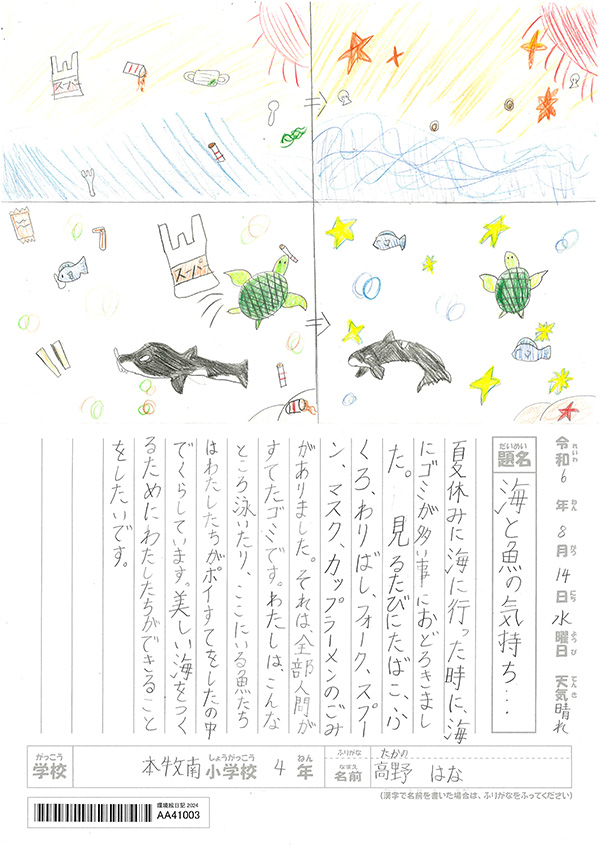 スーパー
スーパー
令和6年8月14日水曜日 天気晴れ
れいわ ねん がつ にち ようび てんき
だいめい
題名
海と魚の気持ち…
夏休みに海に行った時に、海
にゴミが多い事におどろきまし
た。 見るたびにたばこ、ふ
くろ、わりばし、フォーク、スプー
ン、マスク、カップラーメンのごみ
がありました。それは、全部人間が
すてたゴミです。わたしは、こんな
ところ泳いたり、ここにいる魚たち
はわたしたちがポイすてをしたの中
でくらしています。美しい海をつく
るためにわたしたちができること
をしたいです。
がっこう
学校
本牧南小学校 4年
しょうがっこう ねん
ふりがな たかの
なまえ
名前 高野 はな
(漢字で名前を書いた場合は、ふりがなをふってください)
環境絵日記 2024
AA41003